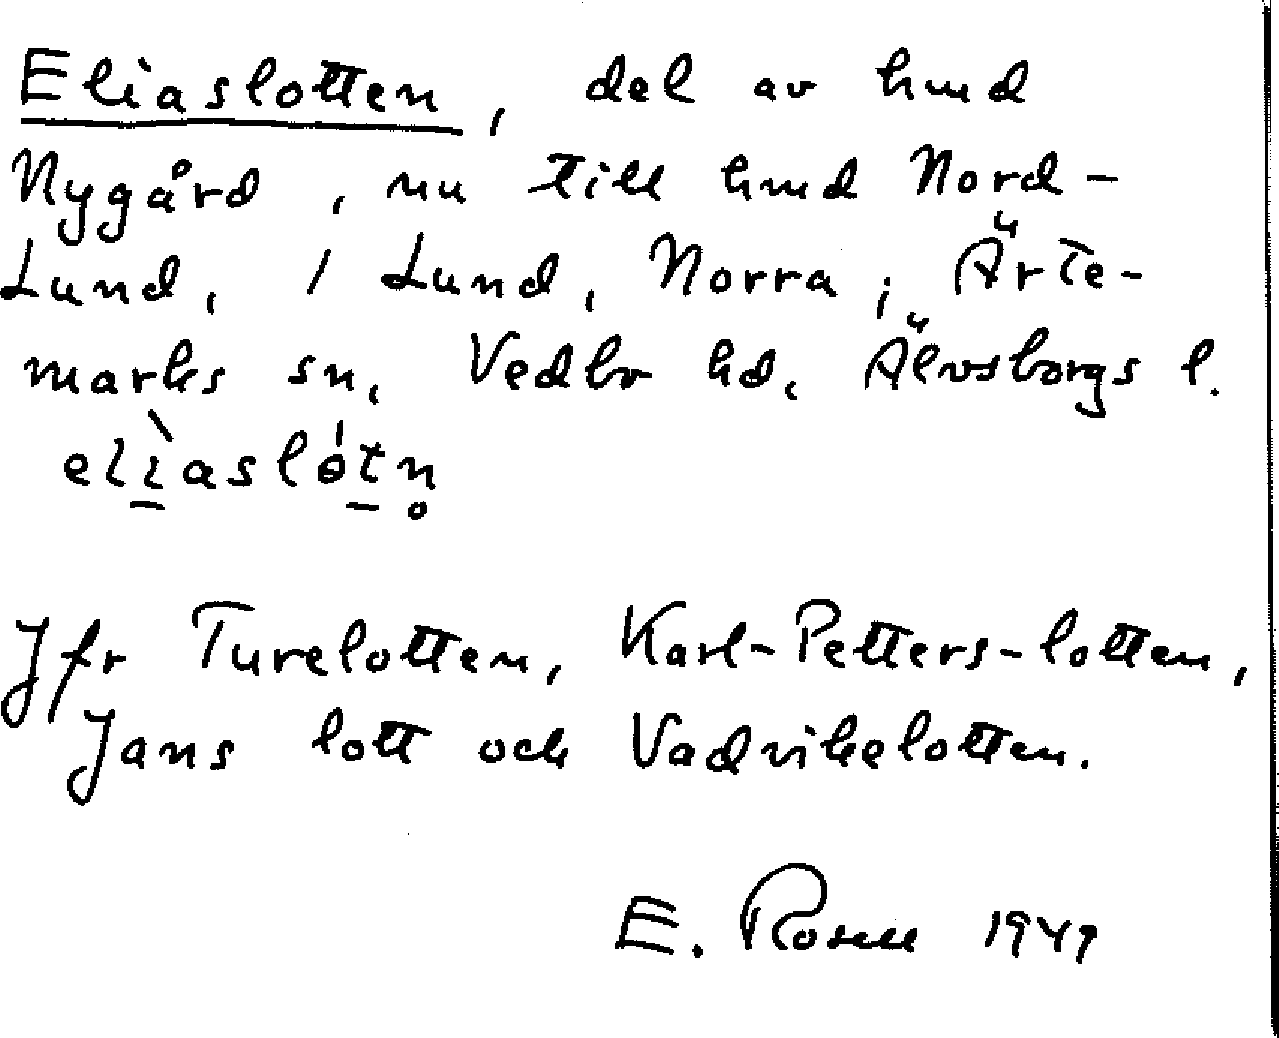 Eliaslotten, del av hmd
Nygård, nu till hmd Nord-
Lund, 1 Lund, Norra, Ärte-
marks sn, Vedbo hd, Älvsborgs l.
elìaslótn̥
Jfr Turelotten, Karl-Petters-lotten,
Jans lott och Vadvikelotten.
E. Rosell 1947